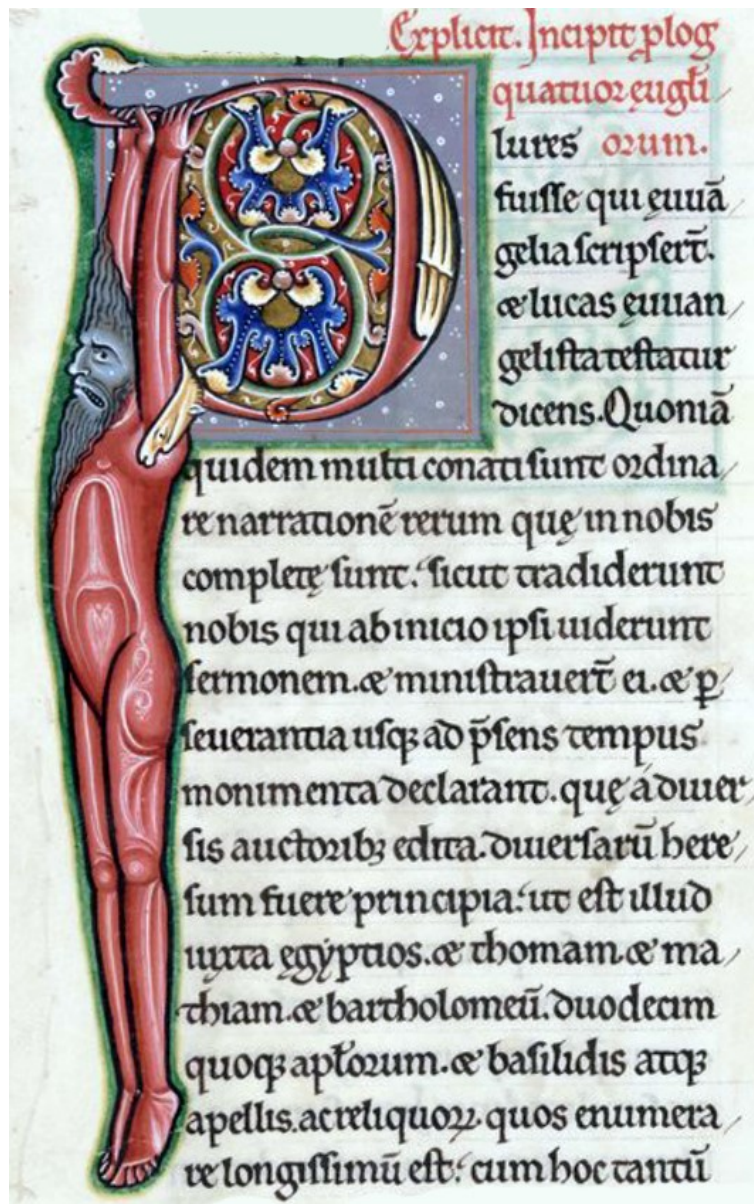 Explicit. Incipit plog
quatuor eugłi
Plures orum.
fuisse qui ęuuā
gelia scripsert̄.
& lucas ęuuan
gelista testatur
dicens. Quoniā
quidem multi conati sunt ordina
re narrationē rerum quę in nobis
completę sunt. sicut tradiderunt
nobis qui ab inicio ipsi uiderunt
sermonem. & ministrauert̄ ei. & ꝑ
seuerantia usqꝫ ad p̄sens tempus
monimenta declarant. quę á diuer
sis auctoribꝫ edita. diuersarū here
sum fuere principia. ut est illud
iuxta ęgyptios. & thomam. & ma
thiam. & bartholomeū. duodecim
quoqꝫ apłorum. & basilidis atqꝫ
apellis. ac reliquoꝝ. quos enumera
re longissimū est. cum hoc tantū